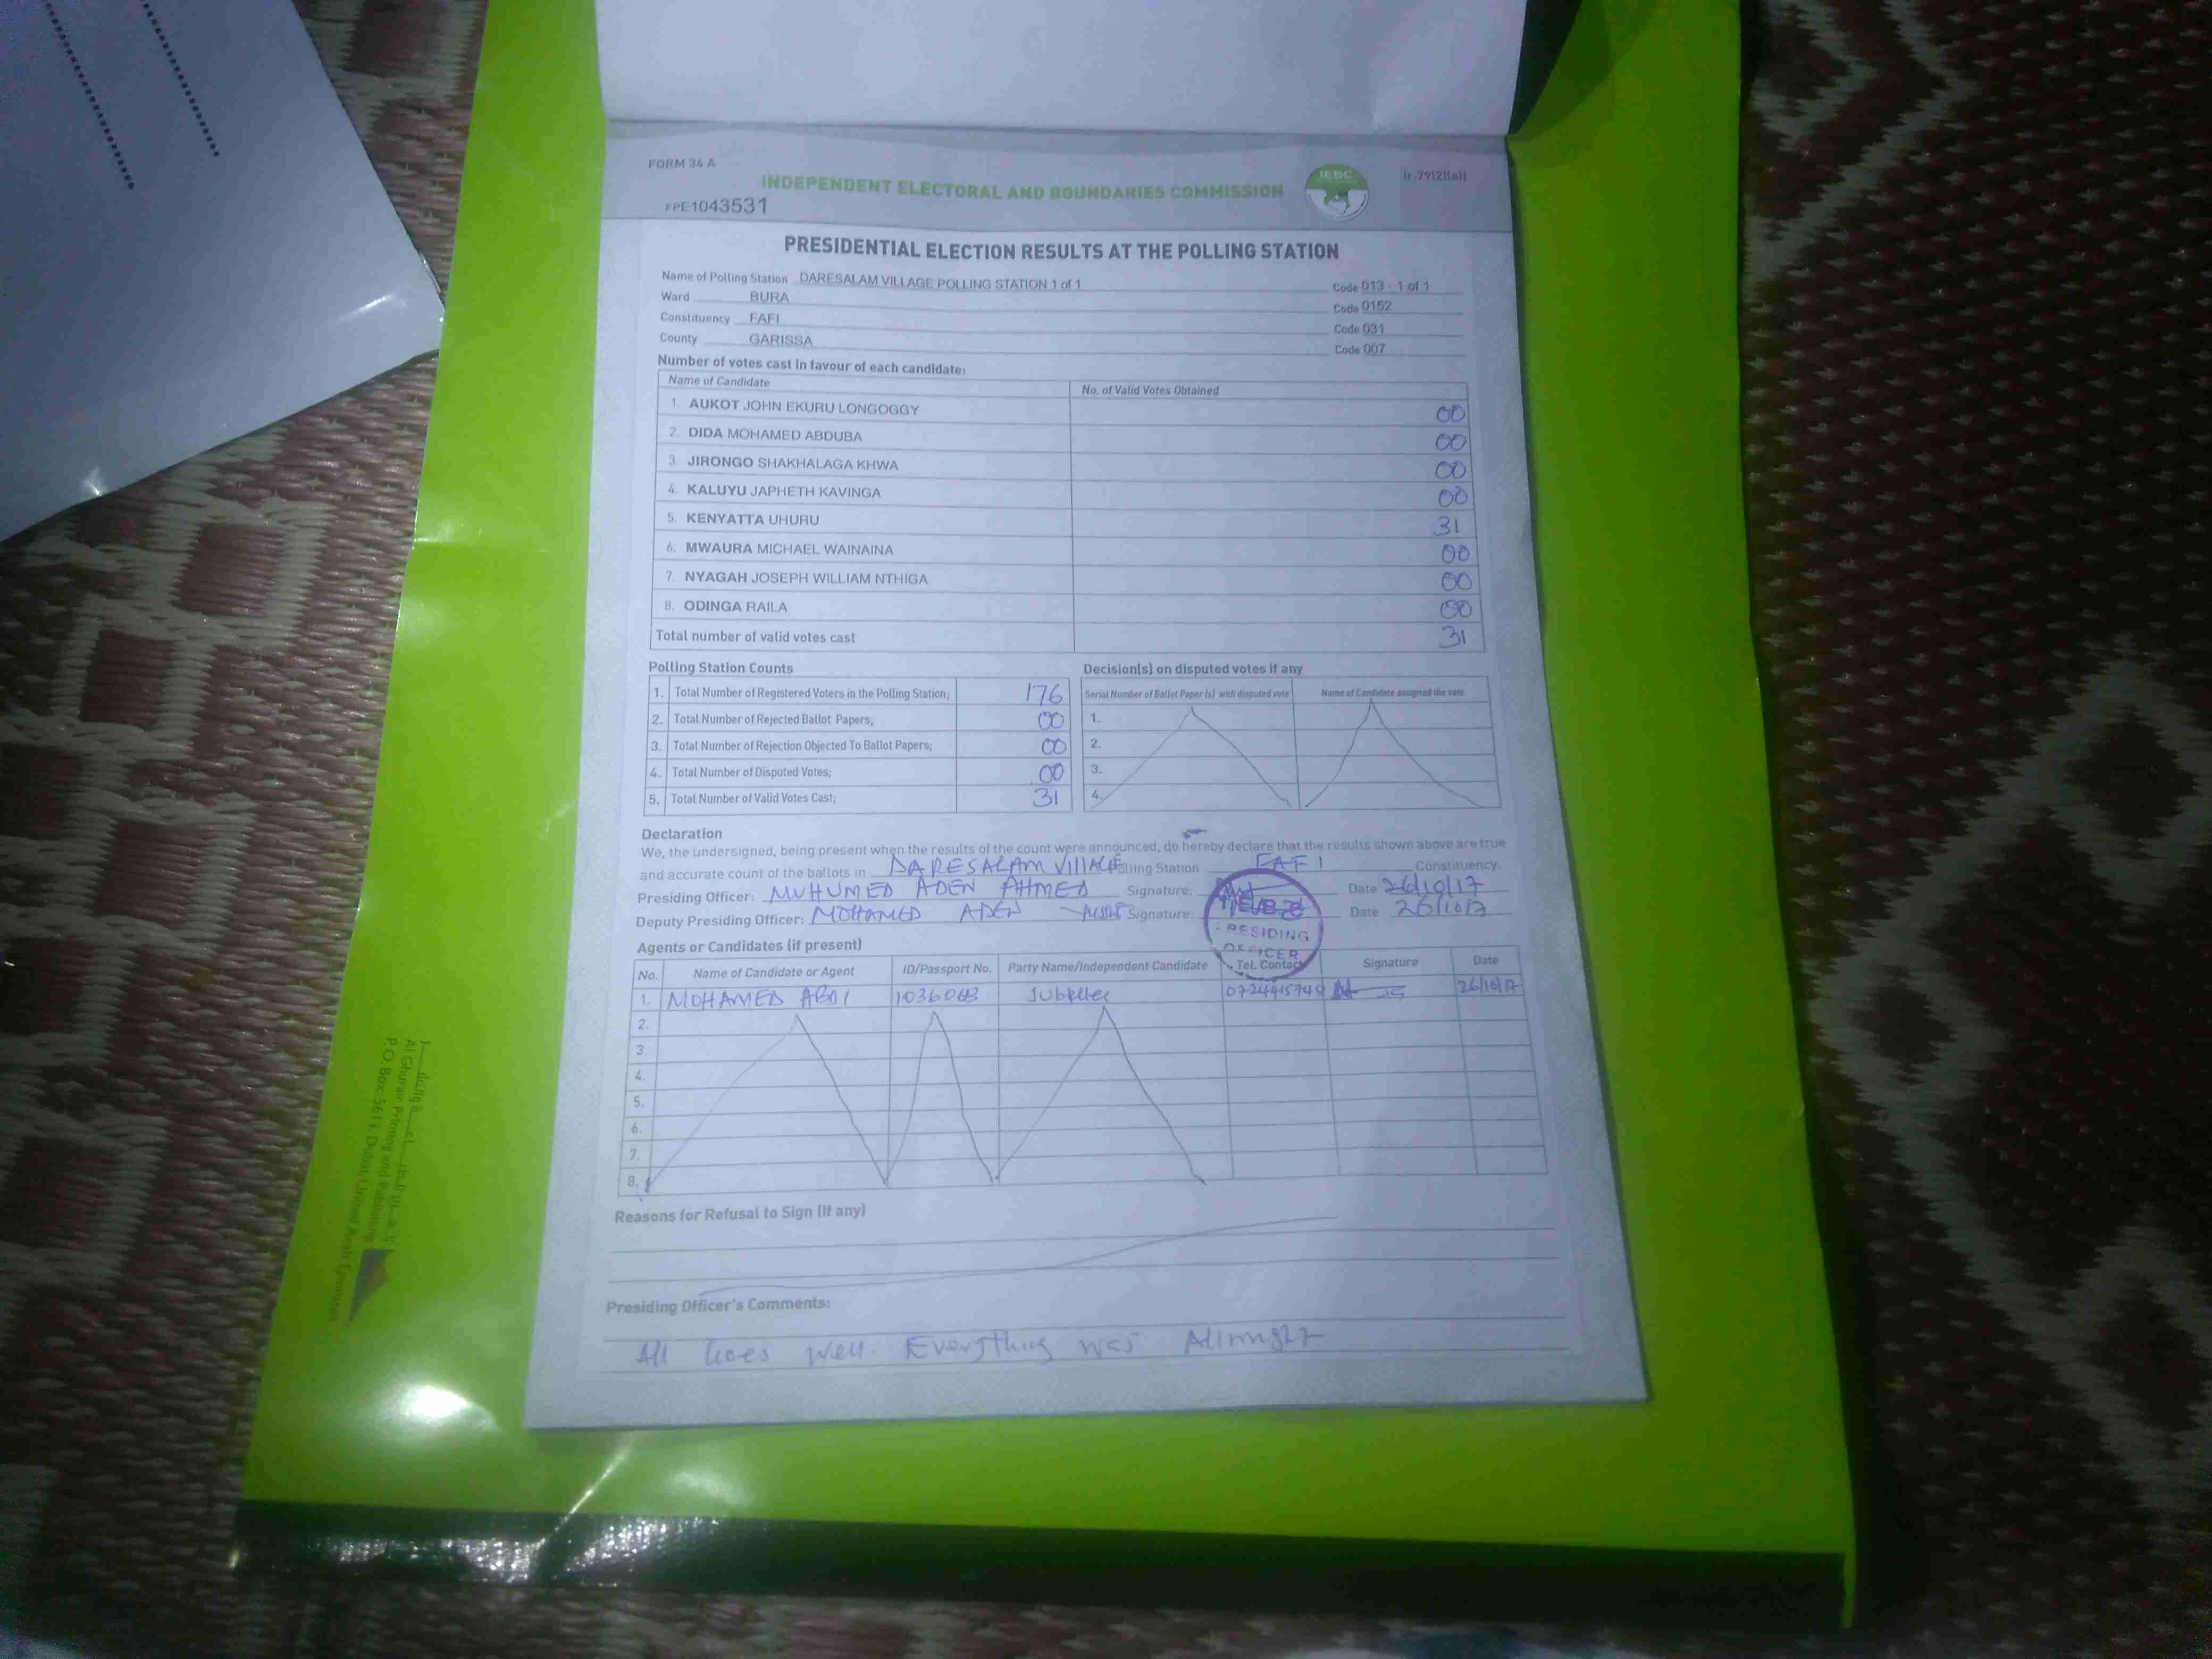 FORM 34 A
INDEPENDENT ELECTORAL AND BOUNDARIES COMMISSION
IEBC
FPE1043531
PRESIDENTIAL ELECTION RESULTS AT THE POLLING STATION
Name of Polling Station DARESALAM VILLAGE POLLING STATION 1 of 1 Code 013 - 1 of 1
Ward BURA Code 0152
Constituency FAFI Code 031
County GARISSA Code 007
Number of votes cast in favour of each candidate:
Name of Candidate No. of Valid Votes Obtained
1. AUKOT JOHN EKURU LONGOGGY 00
2. DIDA MOHAMED ABDUBA 00
3. JIRONGO SHAKHALAGA KHWA 00
4. KALUYU JAPHETH KAVINGA 00
5. KENYATTA UHURU 31
6. MWAURA MICHAEL WAINAINA 00
7. NYAGAH JOSEPH WILLIAM NTHIGA 00
8. ODINGA RAILA 00
Total number of valid votes cast 31
Polling Station Counts
1. Total Number of Registered Voters in the Polling Station; 176
2. Total Number of Rejected Ballot Papers; 00
3. Total Number of Rejection Objected To Ballot Papers; 00
4. Total Number of Disputed Votes; 00
5. Total Number of Valid Votes Cast; 31
Decision(s) on disputed votes if any
Serial Number of Ballot Paper (s) with disputed vote Name of Candidate assigned the vote
1.
2.
3.
4.
Declaration
We, the undersigned, being present when the results of the count were announced, do hereby declare that the results shown above are true
and accurate count of the ballots in DARESALAM VILLAGE Polling Station FAFI Constituency.
Presiding Officer: MUHUMED ADEN AHMED Signature: Date 26/10/17
Deputy Presiding Officer: MOHAMED ADEN Signature: Date 26/10/17
PRESIDING
OFFICER
Agents or Candidates (if present)
No. Name of Candidate or Agent ID/Passport No. Party Name/Independent Candidate Tel. Contact Signature Date
1. MOHAMED ABDI Jubilee 26/10/17
2.
3.
4.
5.
6.
7.
8.
Reasons for Refusal to Sign (if any)
Presiding Officer's Comments:
All Goes well. Everything was Allright
Al Ghurair Printing and Publishing
P.O. Box: 5613, Dubai, United Arab Emirates